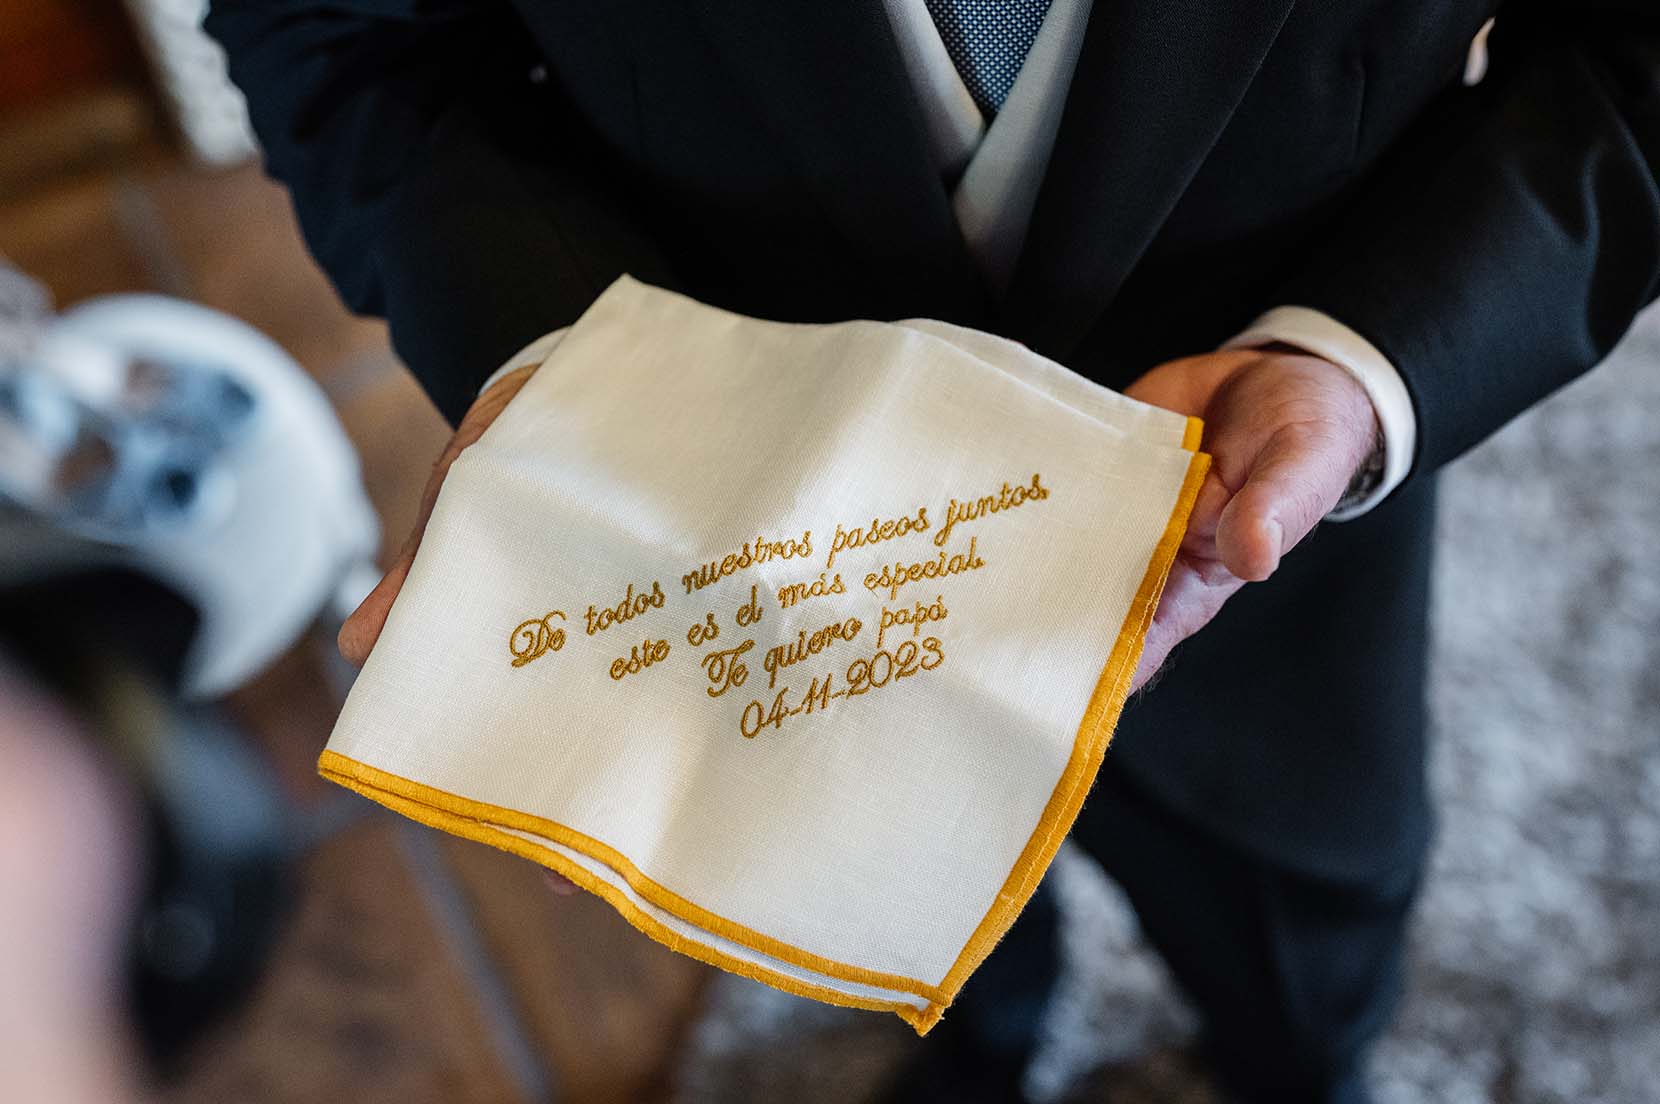 De todos nuestros paseos juntos,
este es el más especial.
Te quiero papá
04-11-2023